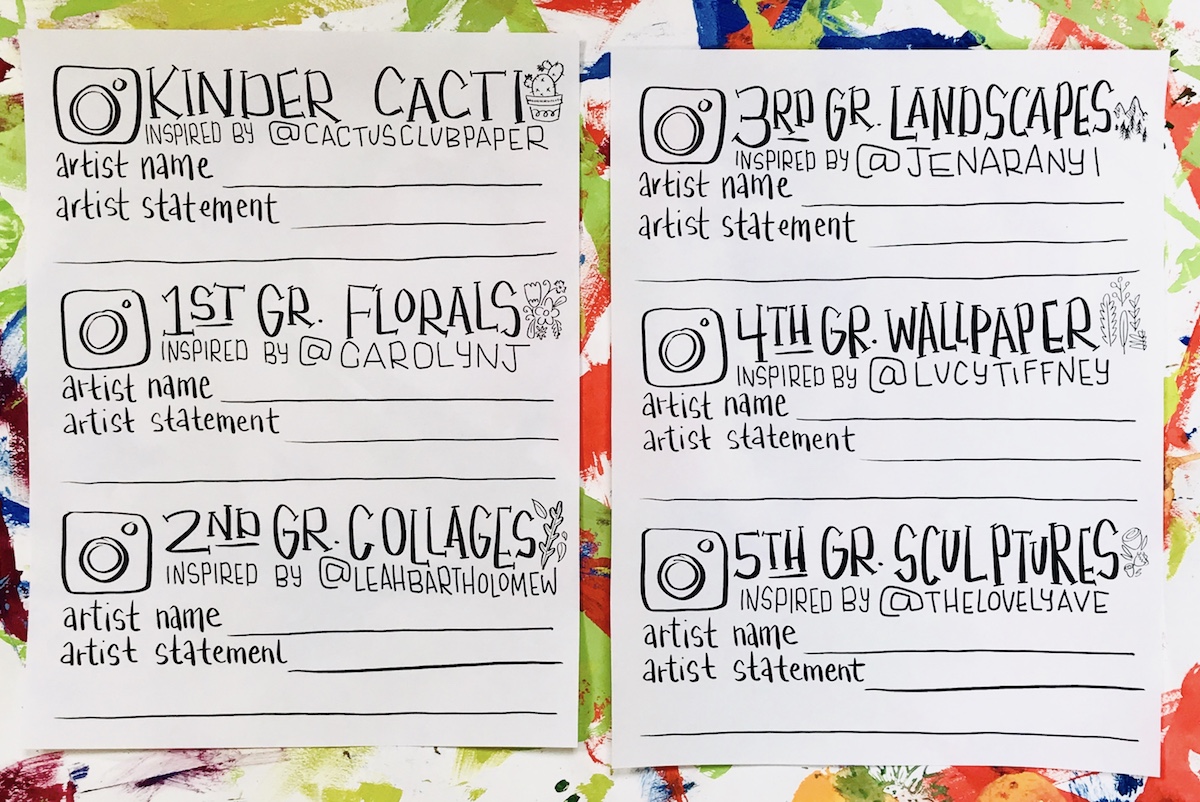 KINDER CACTI
INSPIRED BY @CACTUSCLUBPAPER
artist name
artist statement
1ST GR. FLORALS
INSPIRED BY @CAROLYNJ
artist name
artist statement
2ND GR. COLLAGES
INSPIRED BY @LEAHBARTHOLOMEW
artist name
artist statement
3RD GR. LANDSCAPES
INSPIRED BY @JENARANYI
artist name
artist statement
4TH GR. WALLPAPER
INSPIRED BY @LUCYTIFFNEY
artist name
artist statement
5TH GR. SCULPTURES
INSPIRED BY @THELOVELYAVE
artist name
artist statement